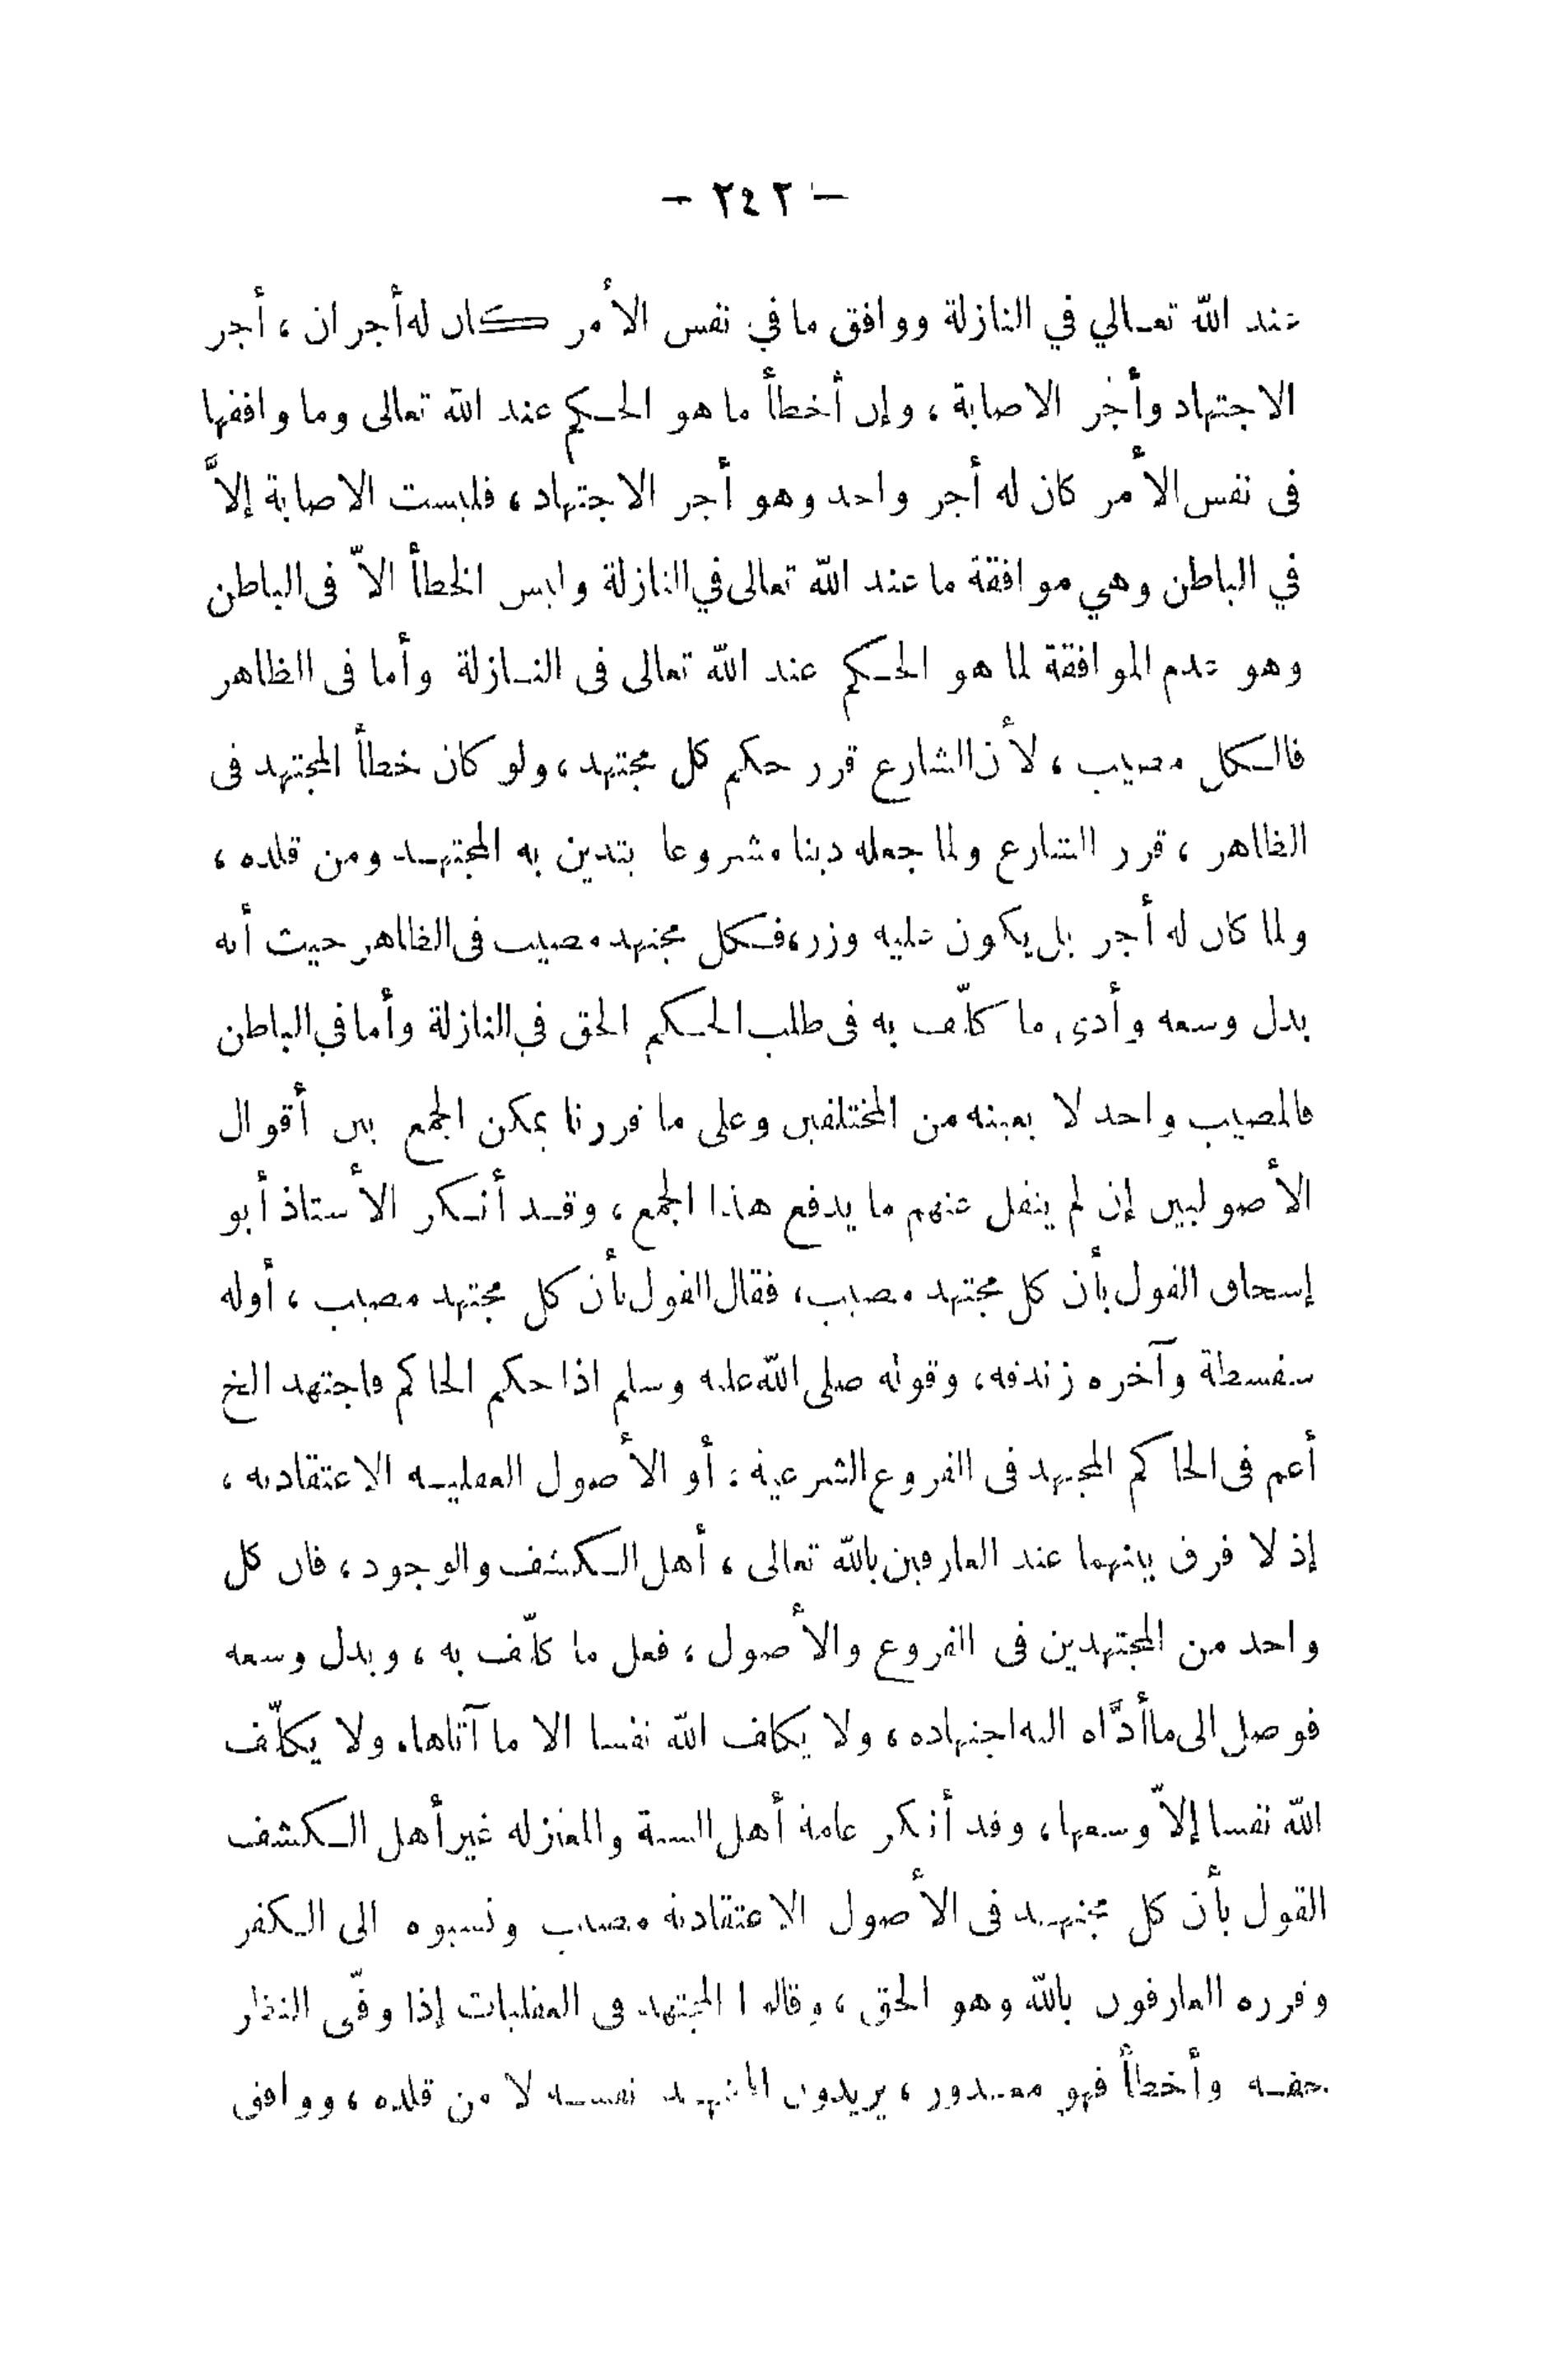 — ٢٤٢ —
عند الله تعالي في النازلة ووافق ما في نفس الأمر كان له أجران ، أجر
الاجتهاد وأجر الاصابة ، وإن أخطأ ما هو الحكم عند الله تعالى وما وافقها
فى نفس الأمر كان له أجر واحد وهو أجر الاجتهاد ، فليست الاصابة إلاَّ
في الباطن وهي موافقة ما عند الله تعالى في النازلة وليس الخطأ الاّ فى الباطن
وهو عدم الموافقة لما هو الحكم عند الله تعالى فى النازلة وأما فى الظاهر
فالكل مصيب ، لأن الشارع قرر حكم كل مجتهد ، ولو كان خطأ المجتهد فى
الظاهر ، قرر الشارع ولما جعله دينا مشروعا يتدين به المجتهد ومن قلده ،
ولما كان له أجر بل يكون عليه وزر ، فكل مجتهد مصيب فى الظاهر حيث أنه
بذل وسعه وأدى ما كلّف به فى طلب الحكم الحق في النازلة وأما في الباطن
فالمصيب واحد لا بعينه من المختلفين وعلى ما قررنا يمكن الجمع بين أقوال
الأصوليين إن لم ينقل عنهم ما يدفع هذا الجمع ، وقد أنكر الأستاذ أبو
إسحاق القول بأن كل مجتهد مصيب ، فقال القول بأن كل مجتهد مصيب ، أوله
سفسطة وآخره زندقه ، وقوله صلى الله عليه وسلم اذا حكم الحاكم فاجتهد الخ
أعم فى الحاكم المجتهد فى الفروع الشرعية : أو الأصول العقليه الاعتقاديه ،
إذ لا فرق بينهما عند العارفين بالله تعالى ، أهل الكشف والوجود ، فان كل
واحد من المجتهدين فى الفروع والأصول ، فعل ما كلّف به ، وبذل وسعه
فوصل الى ما أدَّاه اليه اجتهاده ، ولا يكلف الله نفسا الا ما آتاها. ولا يكلّف
الله نفسا إلاّ وسعها ، وقد أنكر عامة أهل السنة والمعتزله غير أهل الكشف
القول بأن كل مجتهد فى الأصول الاعتقاديه مصيب ونسبوه الى الكفر
وقرره العارفون بالله وهو الحق ، وقالوا المجتهد فى العقليات إذا وفّى النظر
حقه وأخطأ فهو معذور ، يريدون المجتهد نفسه لا من قلده ، ووافق